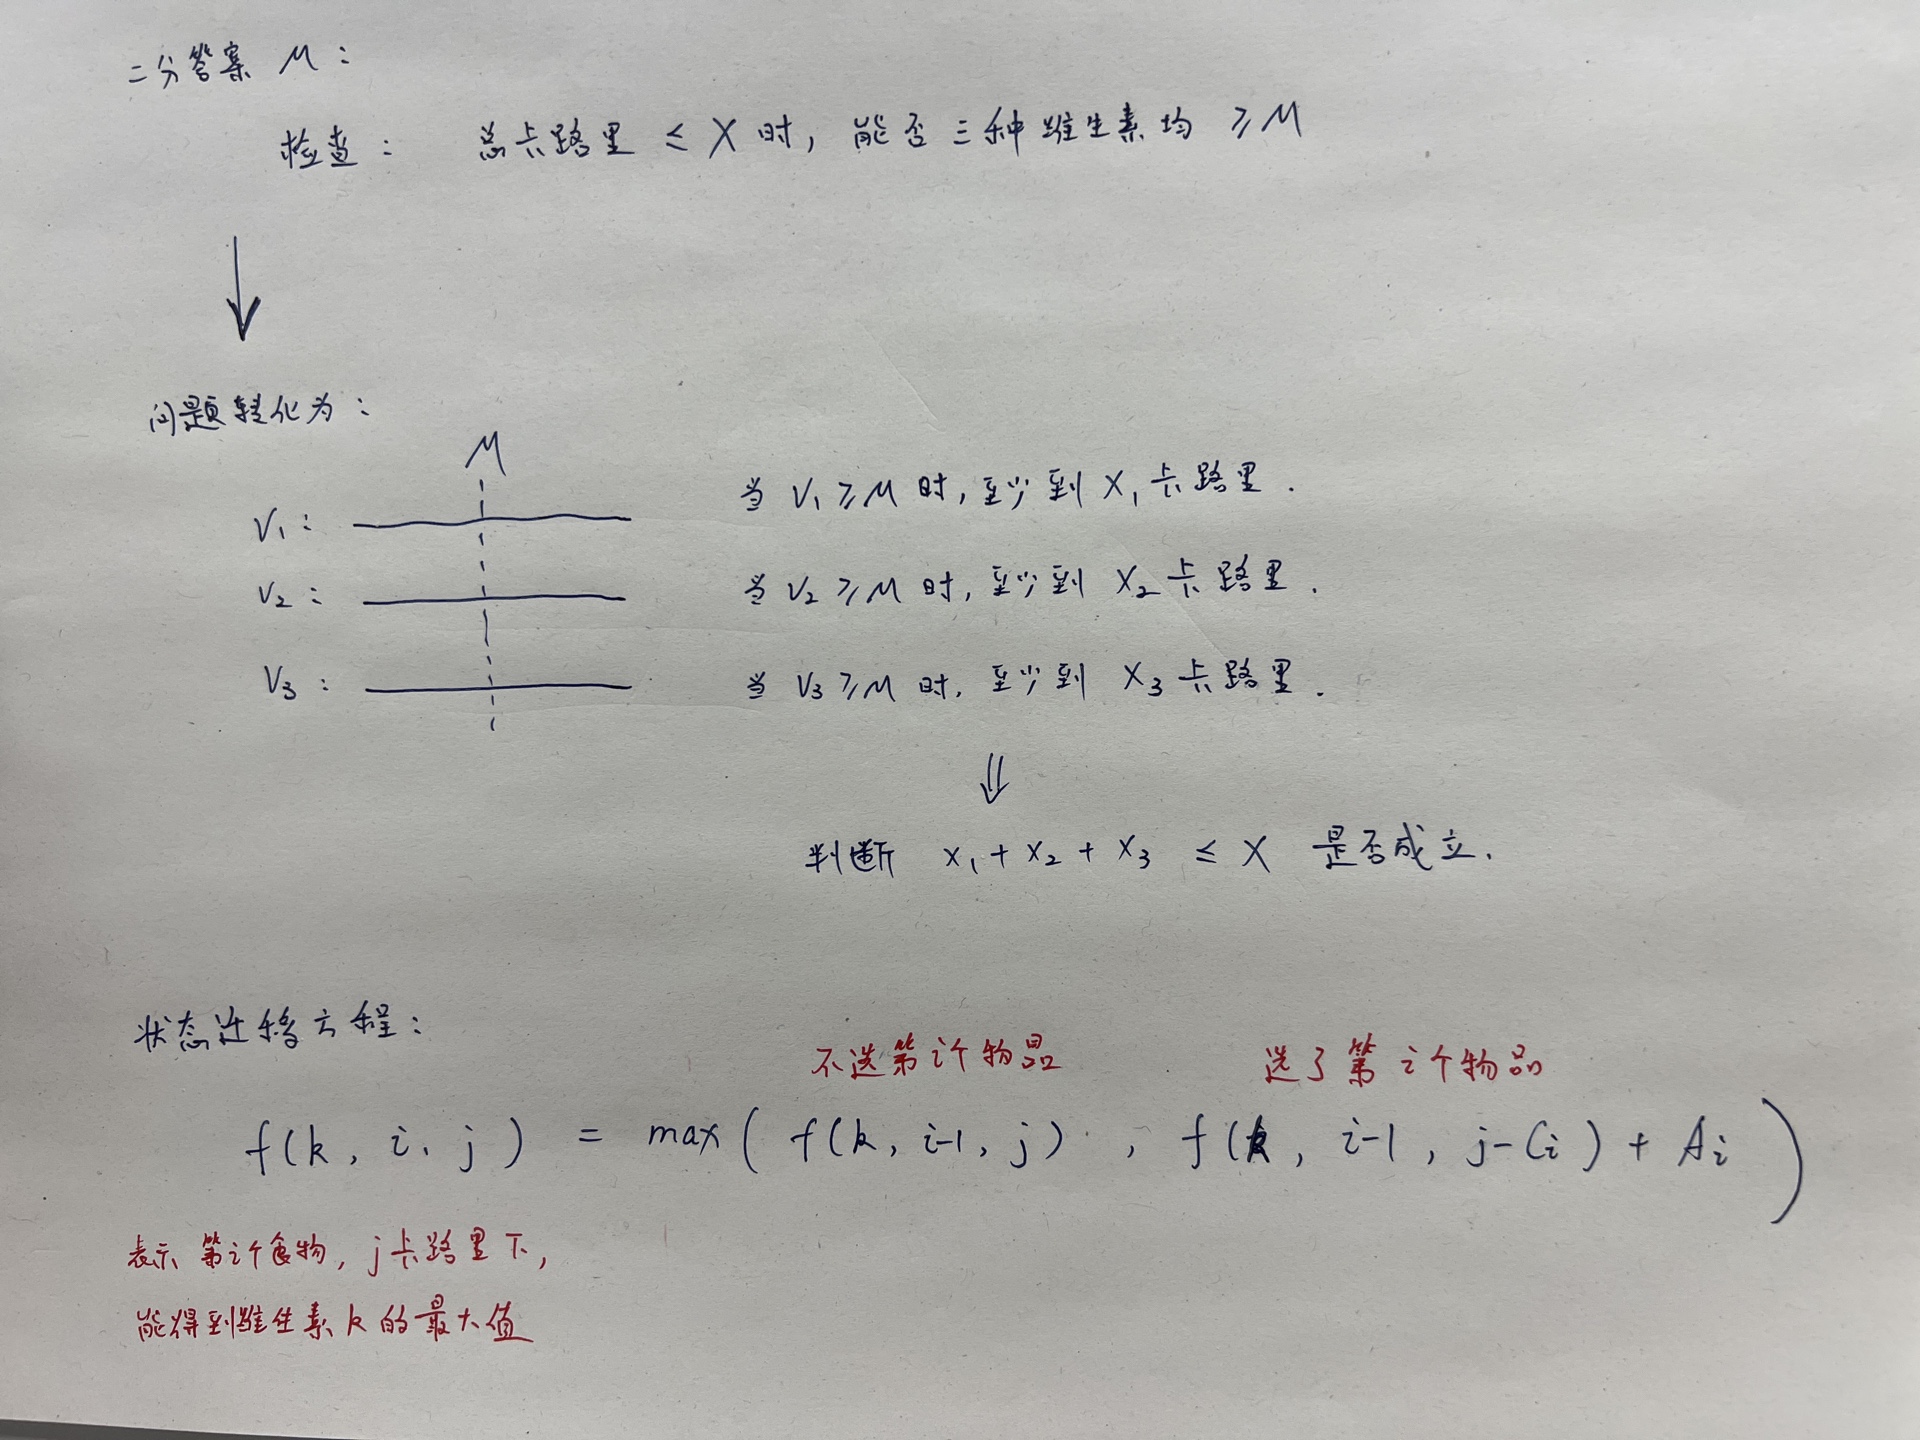 二分答案 M：
检查： 总卡路里 ≤ X 时, 能否三种维生素均 ≥ M
问题转化为：
M
V₁：
当 V₁ ≥ M 时, 至少到 X₁ 卡路里.
V₂：
当 V₂ ≥ M 时, 至少到 X₂ 卡路里.
V₃：
当 V₃ ≥ M 时, 至少到 X₃ 卡路里.
⇓
判断 X₁ + X₂ + X₃ ≤ X 是否成立.
状态迁移方程：
不选第i个物品 选了第i个物品
f(k, i, j) = max( f(k, i-1, j), f(k, i-1, j-Ci) + Ai )
表示第i个食物, j卡路里下,
能得到维生素k的最大值